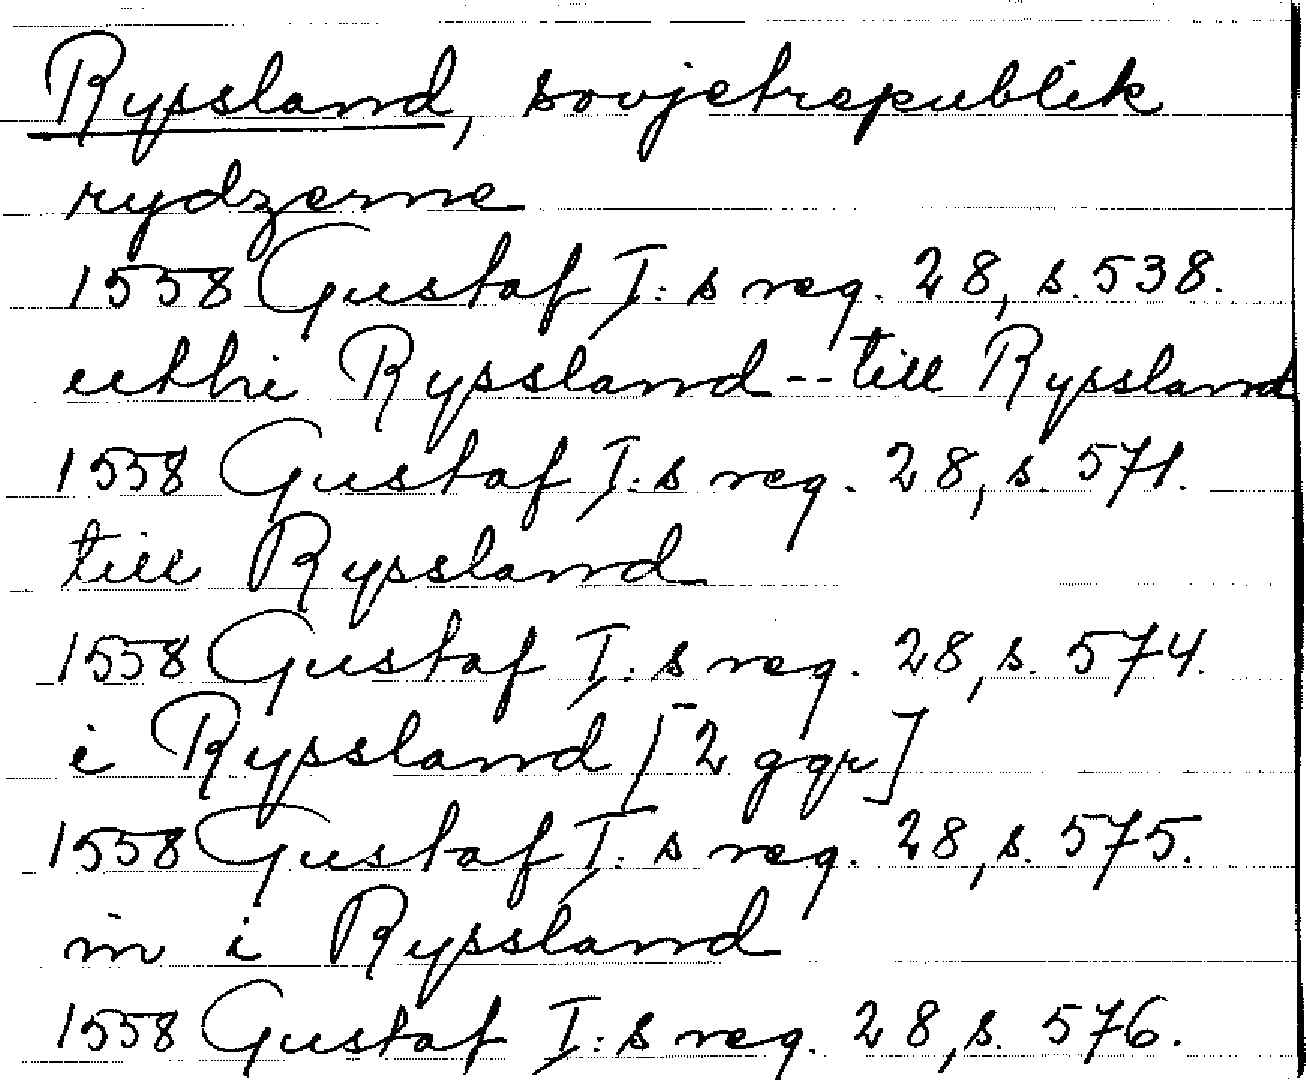 Ryssland, sovjetrepublik
rydzerne
1558 Gustaf I:s reg. 28, s. 538.
utthi Ryssland -- till Ryssland
1558 Gustaf I:s reg. 28, s. 571.
till Ryssland
1558 Gustaf I:s reg. 28, s. 574.
i Ryssland [2 ggr]
1558 Gustaf I:s reg. 28, s. 575.
in i Ryssland
1558 Gustaf I:s reg. 28, s. 576.